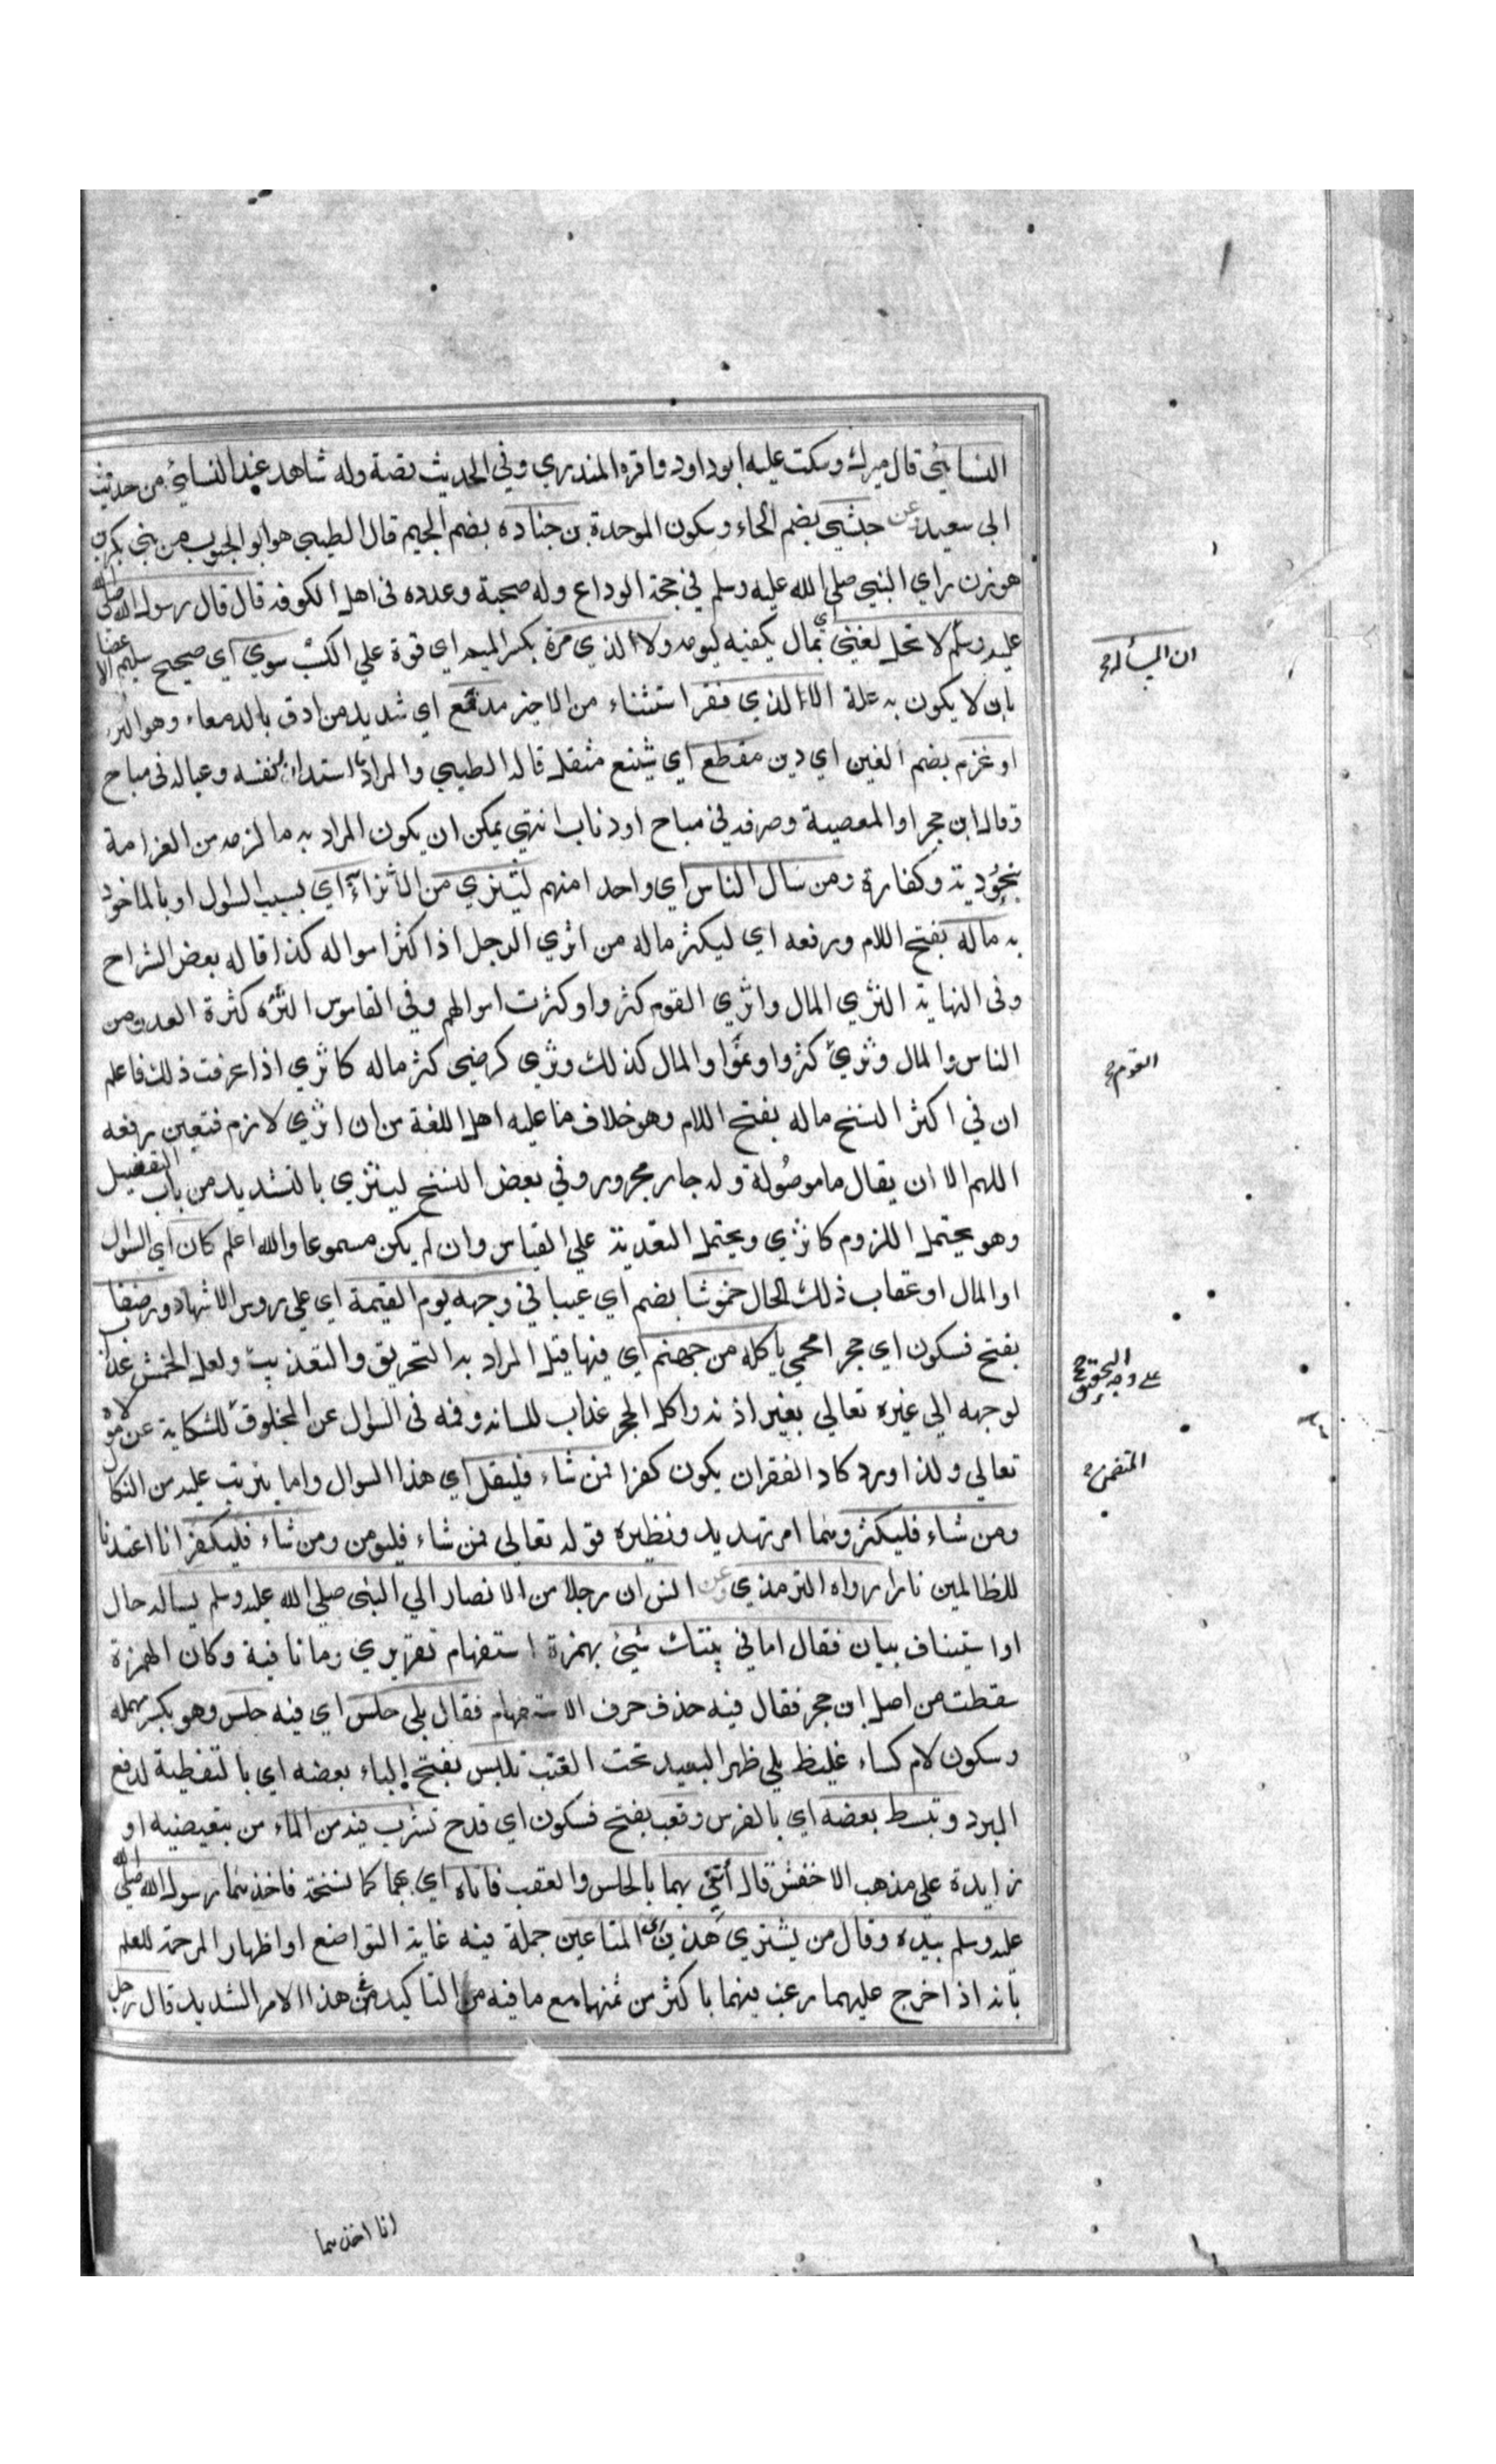 النسائي قال ميرك وسكت عليه ابو داود واقره المنذري وفي الحديث قصة وله شاهد عند النسائي من حديث
ابي سعيد عن حبشي بضم الحاء وسكون الموحدة بن جناده بضم الجيم قال الطيبي هو ابو الجنوب من بني بكر بن
هوزن راي النبي صلي الله عليه وسلم في حجة الوداع وله صحبة وعداده في اهل الكوفه قال قال رسول الله صلي الله
عليه وسلم لا تحل لغني بمال يكفيه ليومه ولا لذي مرة بكسر الميم اي قوة علي الكسب سوي اي صحيح سليم الاعضا
ان المسألة
بان لا يكون به علة الا لذي فقر استثناء من الاخير مدقع اي شديد من ادقع بالدقعاء وهو التراب
او غرم بضم الغين اي دين مفظع اي شنيع مثقل قاله الطيبي والمراد ما استدان لنفسه وعياله في مباح
وقال ابن حجر او المعصية وصرفه في مباح او وتاب انتهي يمكن ان يكون المراد به ما لزمه من الغرامة
بنحو دية وكفارة ومن سال الناس اي واحدا منهم ليثري من الاثراء اي بسبب السؤل او بالماخوذ
به ماله بفتح اللام ورفعه اي ليكثر ماله من اثري الرجل اذا كثر امواله كذا قاله بعض الشراح
وفي النهاية الثري المال واثري القوم كثروا وكثرت اموالهم وفي القاموس الثروة كثرة العدد من
الناس والمال وثري كثروا ونموا والمال كذلك وثري كرضي كثر ماله كاثري اذا عرفت ذلك فاعلم
القوم
ان في اكثر النسخ ماله بفتح اللام وهو خلاف ما عليه اهل اللغة من ان اثري لازم فتعين رفعه
اللهم الا ان يقال ما موصولة وله جار مجرور وفي بعض النسخ ليثري بالتشديد من باب التفعيل
وهو يحتمل اللزوم كاثري ويحتمل التعدية علي القياس وان لم يكن مسموعا والله اعلم كان اي السؤل
او المال او عقاب ذلك الحال خموشا بضم اي عيبا في وجهه يوم القيمة اي علي روس الاشهاد ورضفا
بفتح فسكون اي حجرا محمي ياكله من جهنم اي فيها قيل المراد به التحريق والتعذيب ولعل الخمش عذاب
علي وجه التحقيق
لوجهه الي غيره تعالي بغير اذنه واكل الحجر عذاب للسانه وفمه في السؤل عن المخلوق للشكاية عن مولاه
المتضمن
تعالي ولذا ورد كاد الفقر ان يكون كفرا فمن شاء فليقل اي هذا السوال واما يترتب عليه من النكال
ومن شاء فليكثر وهما امر تهديد ونظيره قوله تعالي فمن شاء فليومن ومن شاء فليكفر انا اعتدنا
للظالمين نارا رواه الترمذي وعن انس ان رجلا من الانصار الي النبي صلي الله عليه وسلم يساله حال
او استيناف بيان فقال اما في بيتك شيئ بهمزة استفهام تقريري وما نافية وكان الهمزة
سقطت من اصل ابن حجر فقال فيه حذف حرف الاستفهام فقال بلي حلس اي فيه حلس وهو بكسر مهملة
وسكون لام كساء غليظ يلي ظهر البعير تحت القتب نلبس بفتح الباء بعضه اي بالتغطية لدفع
البرد ونبسط بعضه اي بالفرس وقعب بفتح فسكون اي قدح نشرب فيه من الماء من تبعيضيه او
زايدة علي مذهب الاخفش قال أتني بهما بالحلس والقعب فاتاه اي بهما كما نسخة فاخذهما رسول الله صلي الله
عليه وسلم بيده وقال من يشتري هذين اي المتاعين جملة فيه غاية التواضع او اظهار المرحمة للعلم
بانه اذا خرج عليهما رغب فيهما باكثر من ثمنهما مع ما فيه من التاكيد في هذا الامر الشديد قال رجل
انا اخذهما